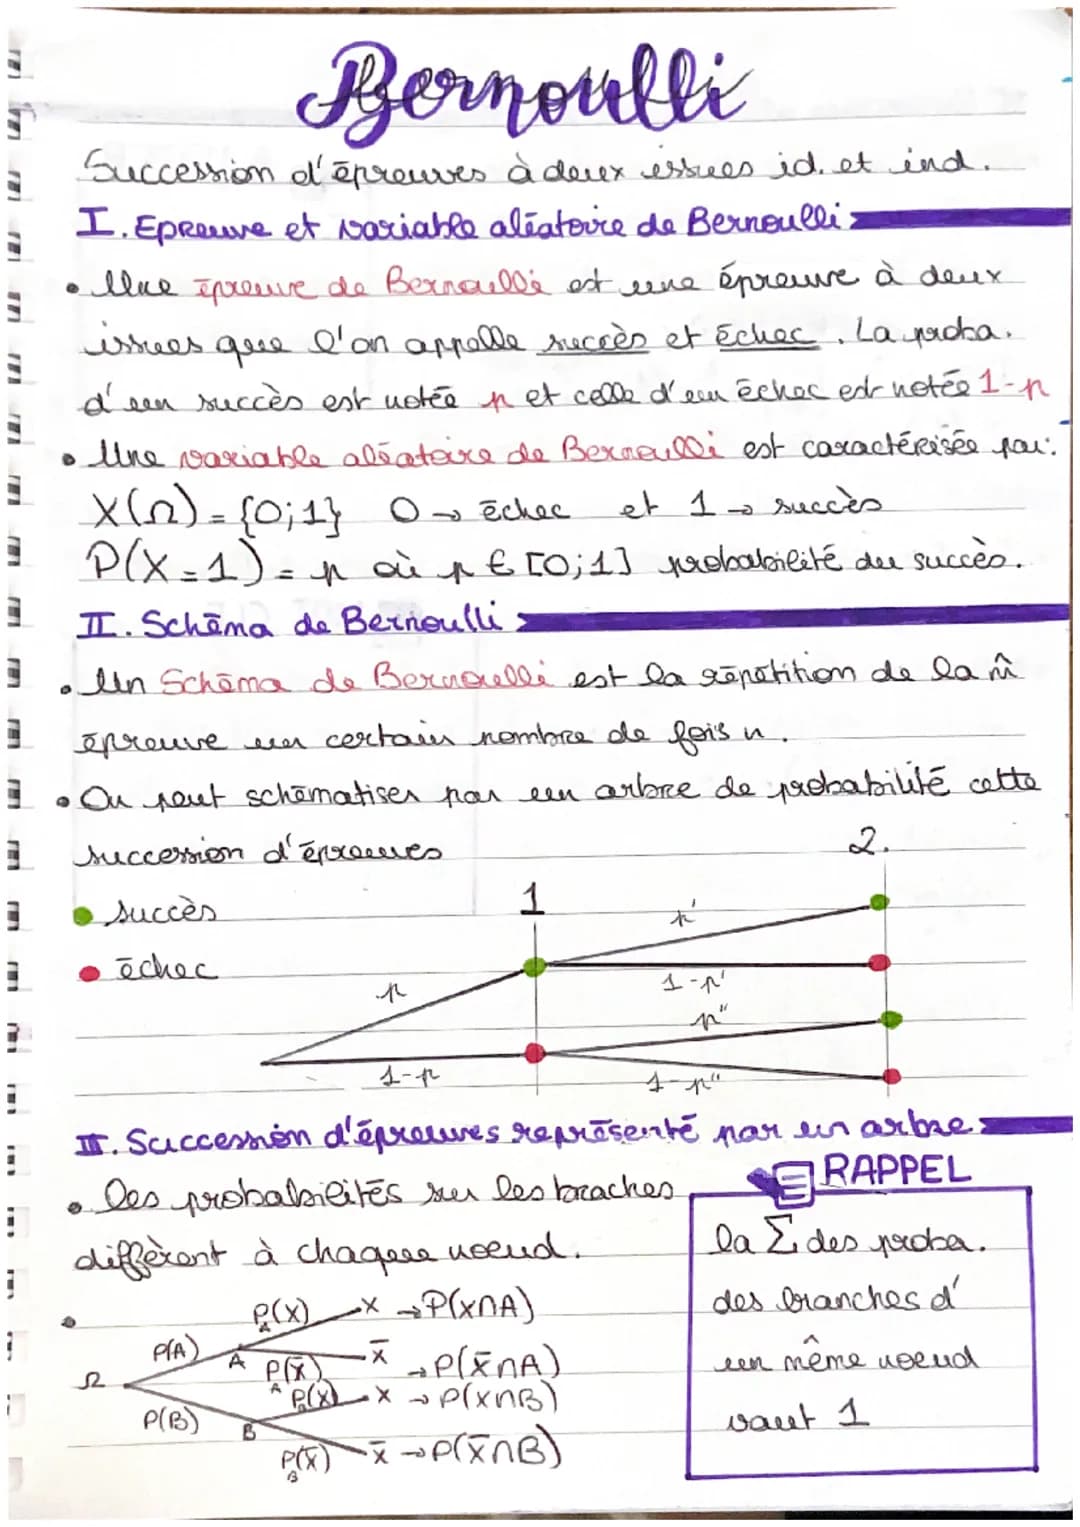 Bernoulli
Succession d'épreuves à deux issues id. et ind.
I. Epreuve et variable aléatoire de Bernoulli
• Une épreuve de Bernoulli est une épreuve à deux
issues que l'on appelle succès et échec. La proba.
d'un succès est notée p et celle d'un échec est notée 1-p
• Une variable aléatoire de Bernoulli est caractérisée par:
X(Ω) = {0;1} 0 → échec et 1 → succès
P(X=1) = p où p ∈ [0;1] probabilité du succès.
II. Schéma de Bernoulli
• Un Schéma de Bernoulli est la répétition de la m̂
épreuve un certain nombre de fois n.
• On peut schématiser par un arbre de probabilité cette
succession d'épreuves
2.
• succès
1
p'
• échec
1-p'
p
p"
1-p
1-p"
III. Succession d'épreuves représenté par un arbre
RAPPEL
• les probabilités sur les braches
diffèrent à chaque noeud.
la Σ des proba.
des branches d'
un même noeud
vaut 1
• P_A(X) X → P(X∩A)
P(A) A P_A(X̄) X̄ → P(X̄∩A)
Ω P_B(X) X → P(X∩B)
P(B) B
P_B(X̄) X̄ → P(X̄∩B)